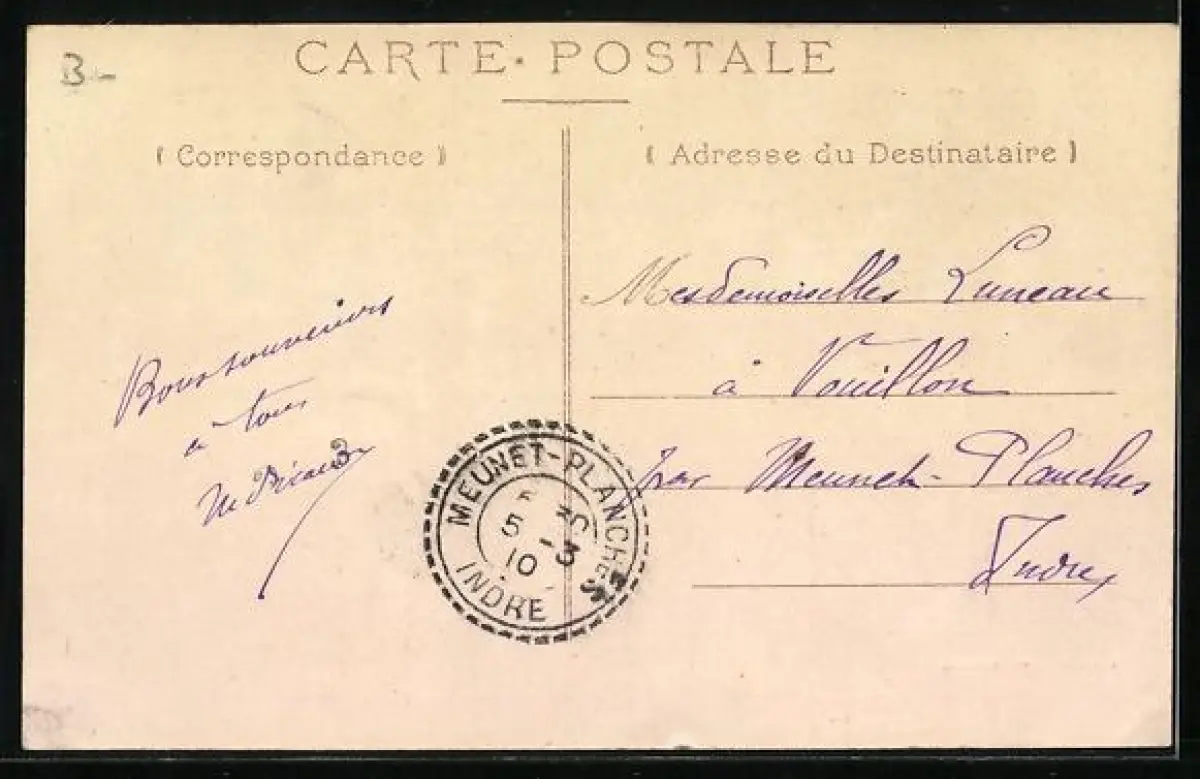 B-
CARTE POSTALE
( Correspondance )
( Adresse du Destinataire )
Mesdemoiselles Luneau
à Vouillon
par Meunet-Planches
Indre
Bons souvenirs
à tous
MEUNET-PLANCHES
5 -3
10
INDRE